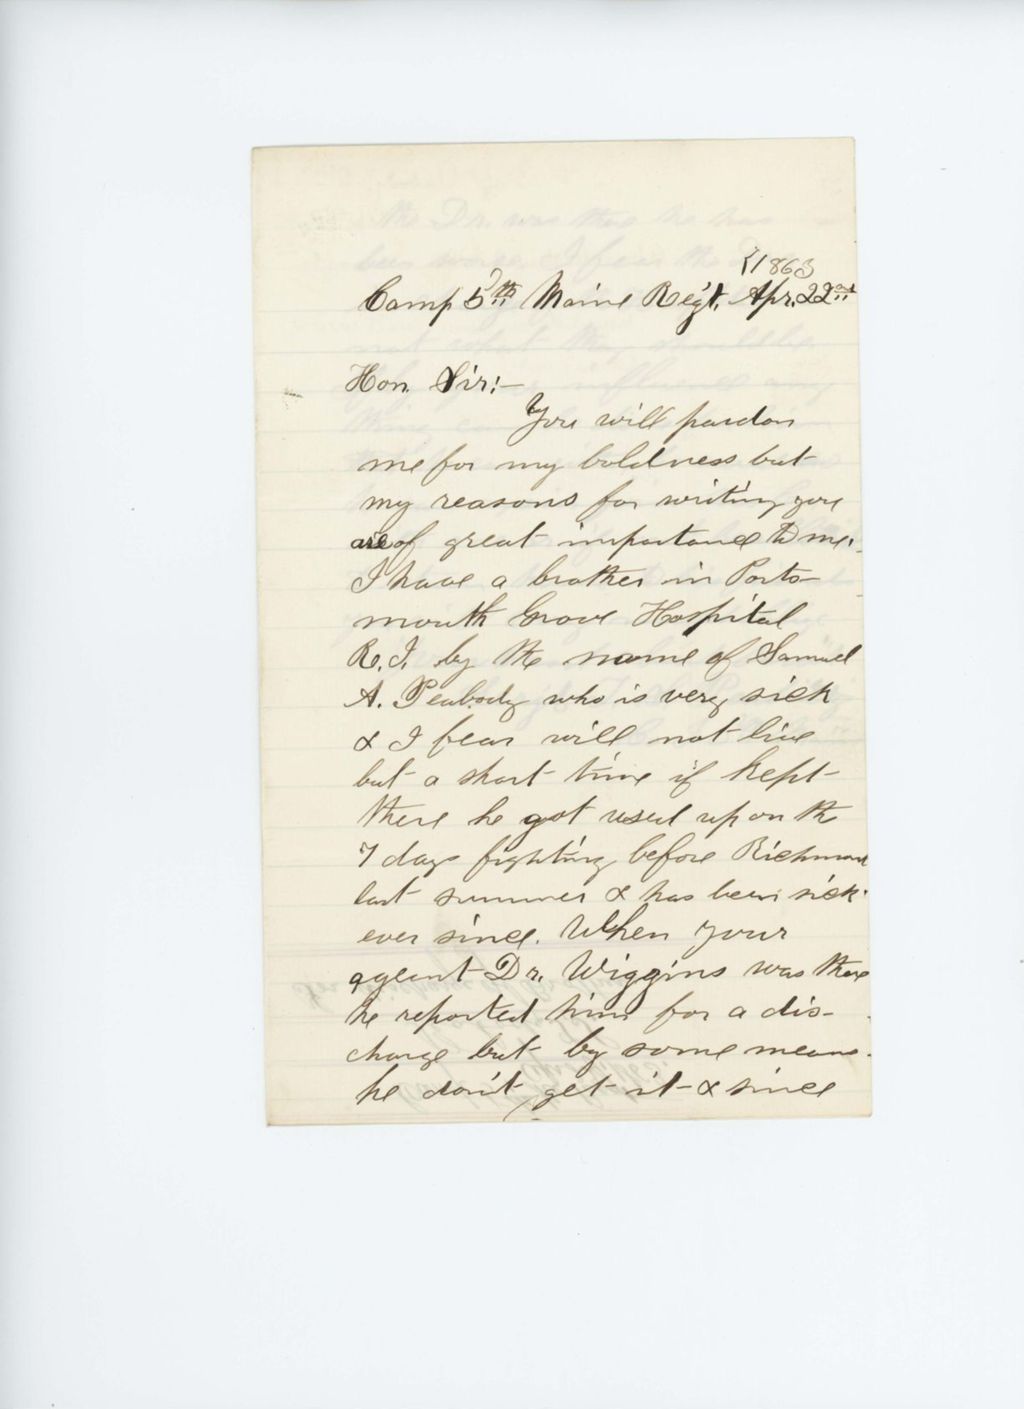 1863
Camp 5th Maine Reg't. Apr. 22nd
Hon. Sir:-
You will pardon
me for my boldness but
my reasons for writing you
are of great importance to me.
I have a brother in Ports-
mouth Grove Hospital
R.I. by the name of Samuel
A. Peabody who is very sick
& I fear will not live
but a short time if kept
there he got used up on the
7 days fighting before Richmond
last summer & has been sick
ever since. When your
agent Dr. Wiggins was there
he reported him for a dis-
charge but by some means
he don't get it & since